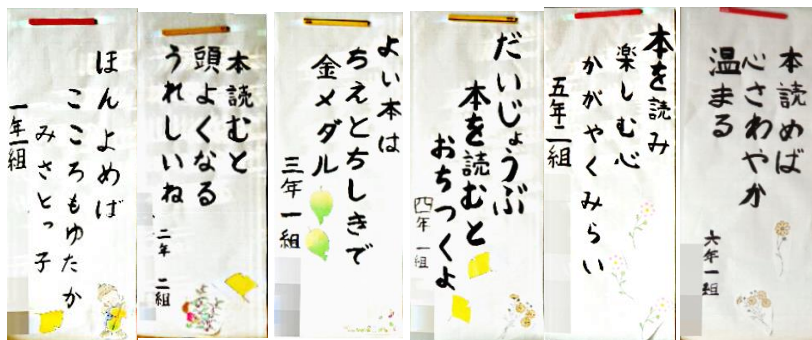 ほんよめば
こころもゆたか
みさとっ子
一年一組
本読むと
頭よくなる
うれしいね
二年 二組
よい本は
ちえとちしきで
金メダル
三年 一組
だいじょうぶ
本を読むと
おちつくよ
四年 一組
本を読み
楽しむ心
かがやくみらい
五年二組
本読めば
心さわやか
温まる
六年一組